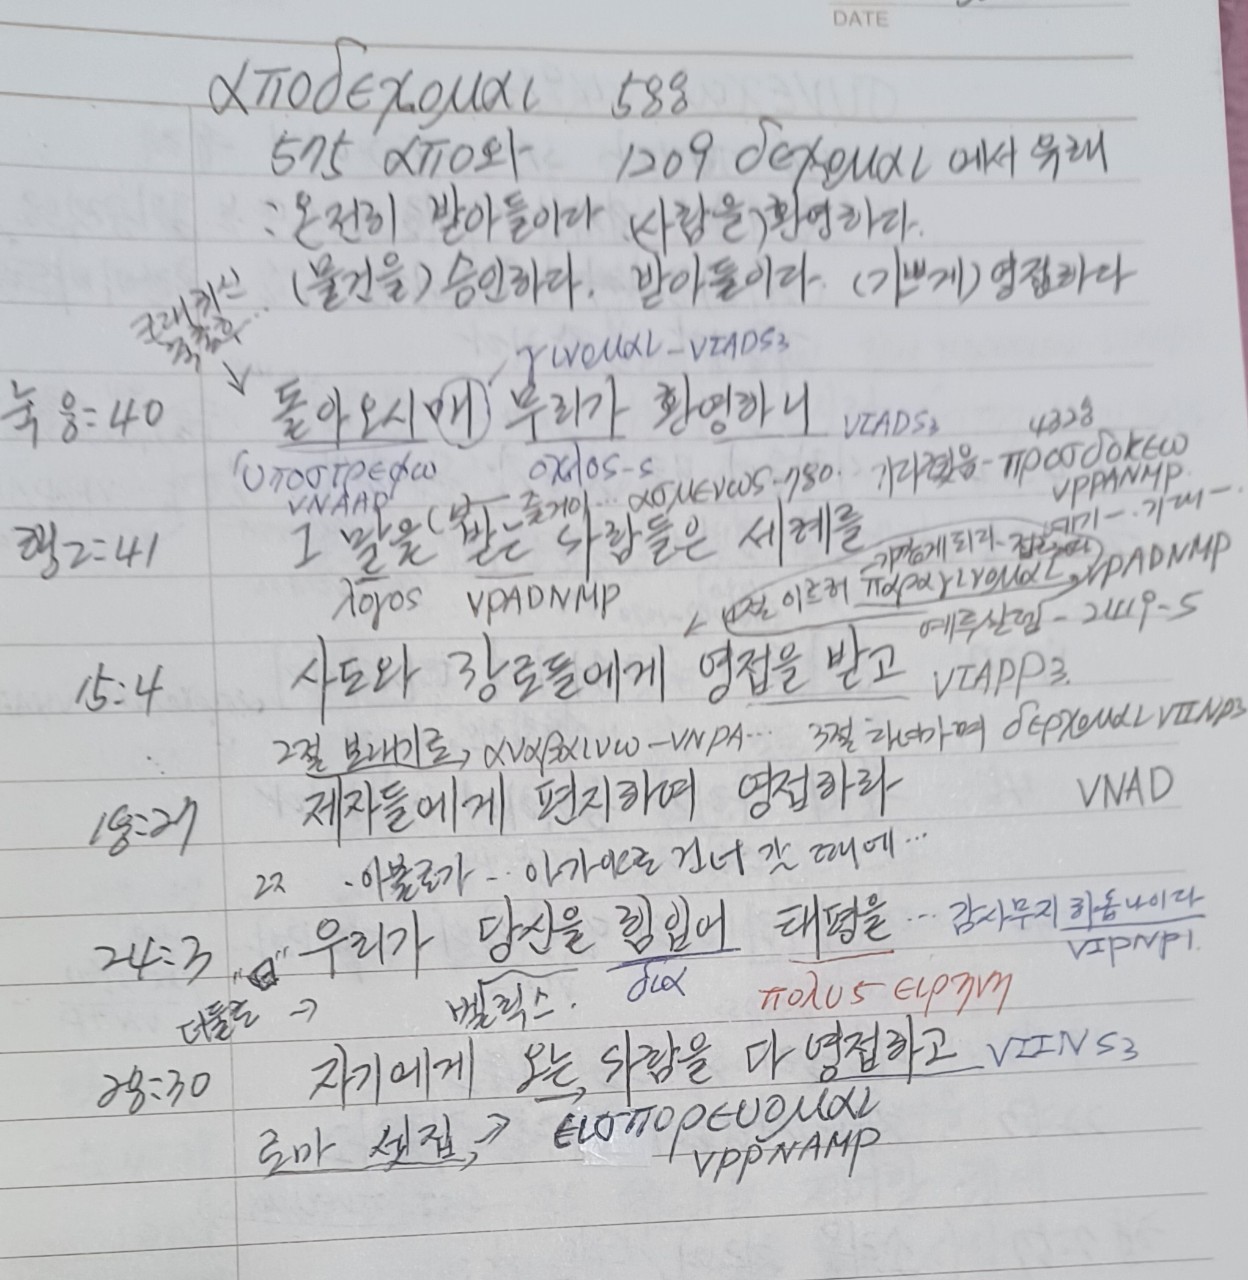 DATE
αποδεχομαι 588
575 απο와 1209 δεχομαι에서 유래
: 온전히 받아들이다 (사람을) 환영하다.
(물건을) 승인하다. 받아들이다. (기쁘게) 영접하다
γινομαι-VIADS3
눅 8:40 돌아오시매 무리가 환영하니 VIADS3
υποστρεφω οχλος-s 기다렸음-προσδοκεω 4328
VNAAP VPPANMP
즐거이. ασμενωs-780.
행2:41 그 말을 받는 사람들은 세례를
λογοs VPADNMP
2절 이르러 παραγινομαι, VPADNMP
예루살렘-2419-S
15:4 사도와 장로들에게 영접을 받고 VIAPP3
2절 보내기로, αναβαινω-VNPA... 3절 다녀가며 δερχομαι VIINP3
18:27 제자들에게 편지하며 영접하라 VNAD
·아볼로가... 아가야로 건너 갈 때에...
24:3 우리가 당신을 힘입어 태평을... 감사무지 하옵나이다
VIPNP1.
더둘로 → 벨릭스. δια πολυs ειρηνη
28:30 자기에게 오는 사람을 다 영접하고 VIINS3
로마 셋집, → εισπορευομαι
VPPNAMP